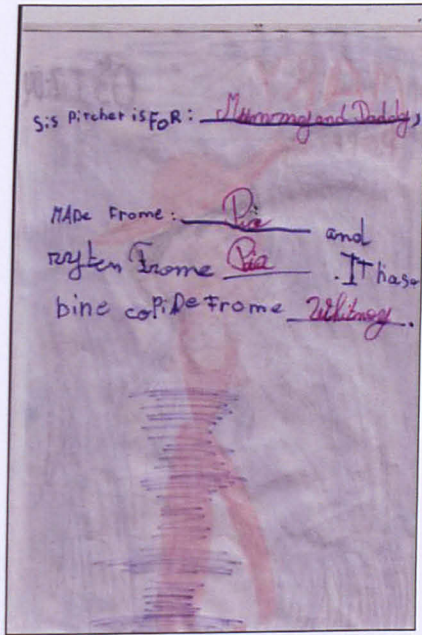 Sis Pircher is FoR: Mummy and Daddy,
MADe Frome: Pia and
ryten Frome Pia. IT hase
bine coPiDe Frome Whitney.